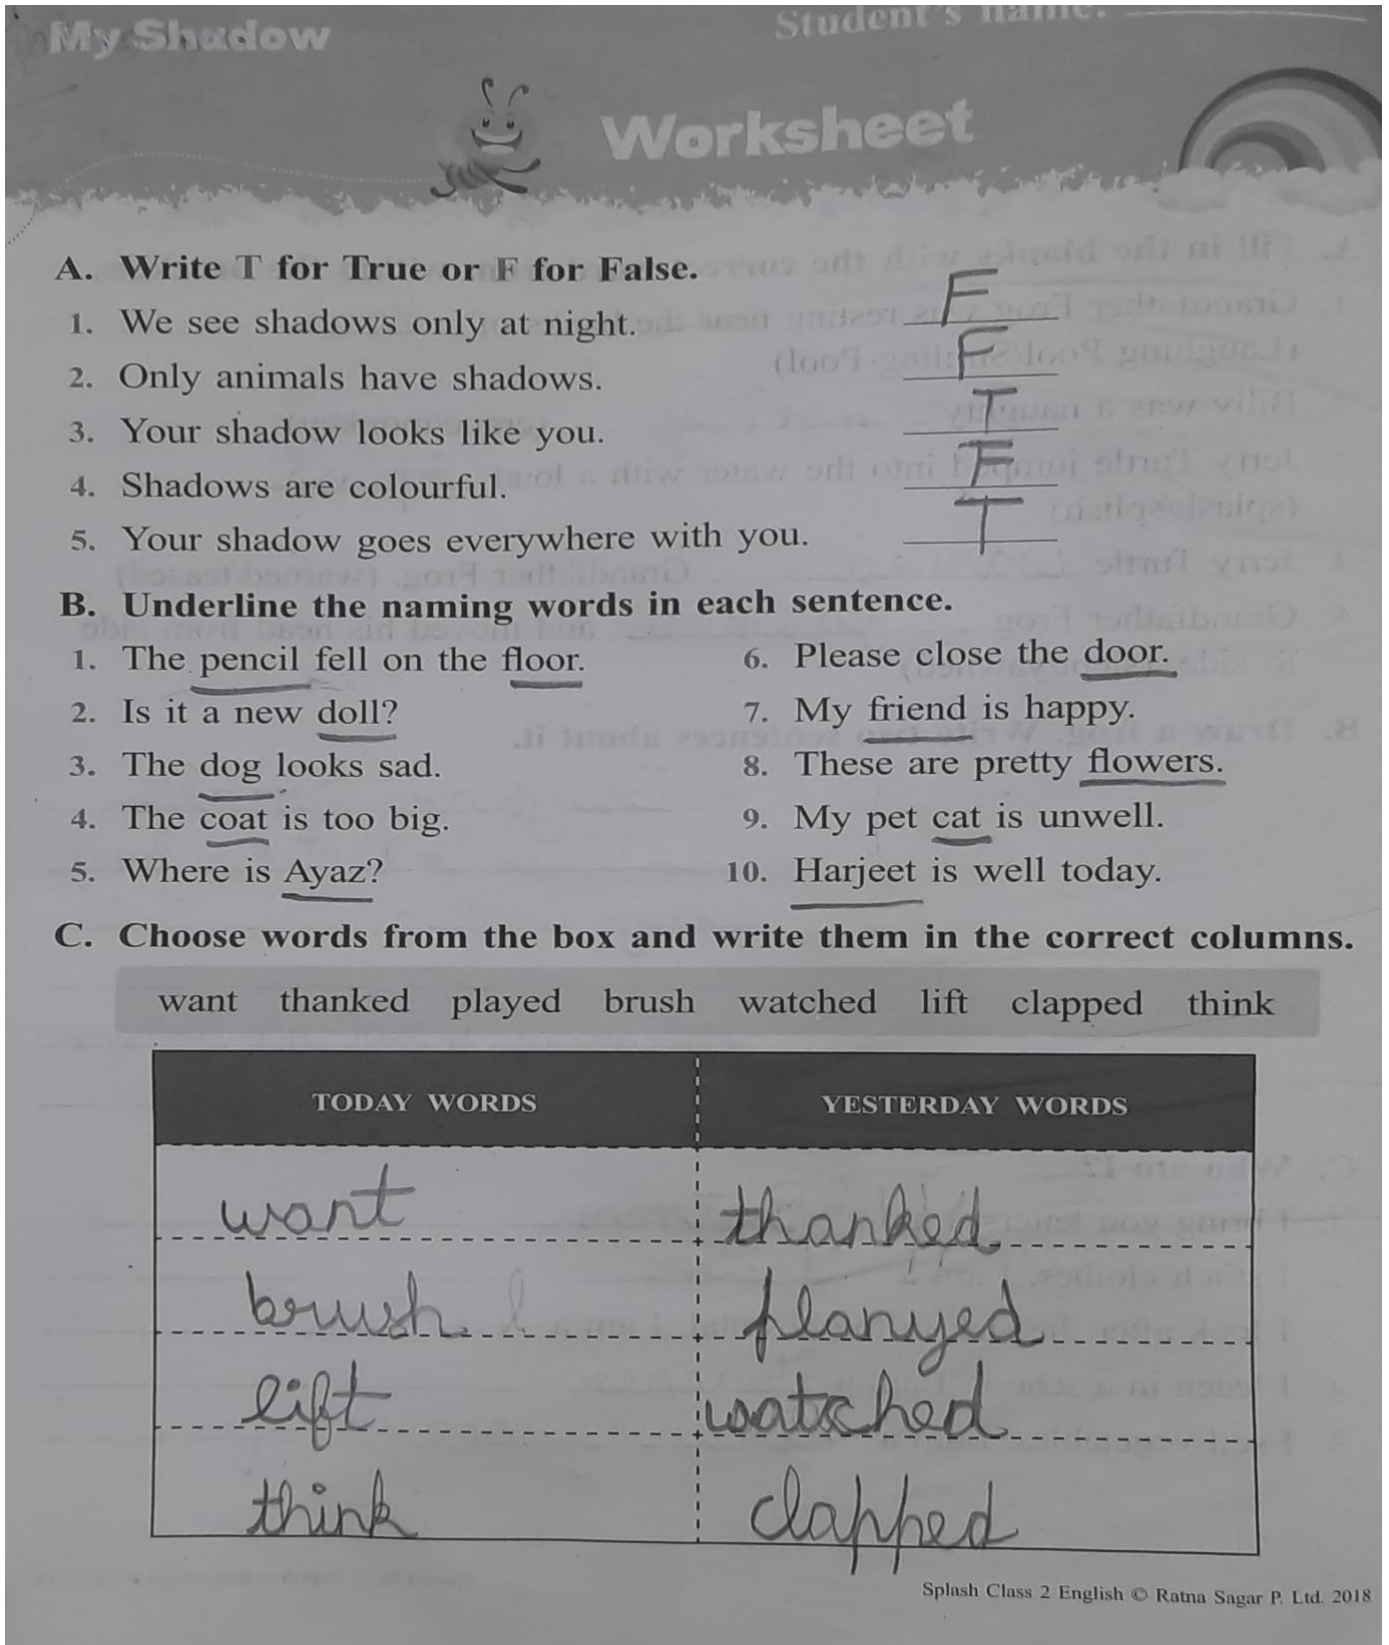 My Shadow
Student's name:
Worksheet
A. Write T for True or F for False.
1. We see shadows only at night. F
2. Only animals have shadows. F
3. Your shadow looks like you. T
4. Shadows are colourful. F
5. Your shadow goes everywhere with you. T
B. Underline the naming words in each sentence.
1. The pencil fell on the floor.
2. Is it a new doll?
3. The dog looks sad.
4. The coat is too big.
5. Where is Ayaz?
6. Please close the door.
7. My friend is happy.
8. These are pretty flowers.
9. My pet cat is unwell.
10. Harjeet is well today.
C. Choose words from the box and write them in the correct columns.
want thanked played brush watched lift clapped think
TODAY WORDS YESTERDAY WORDS
want thanked
brush planyed
lift watched
think clapped
Splash Class 2 English © Ratna Sagar P. Ltd. 2018